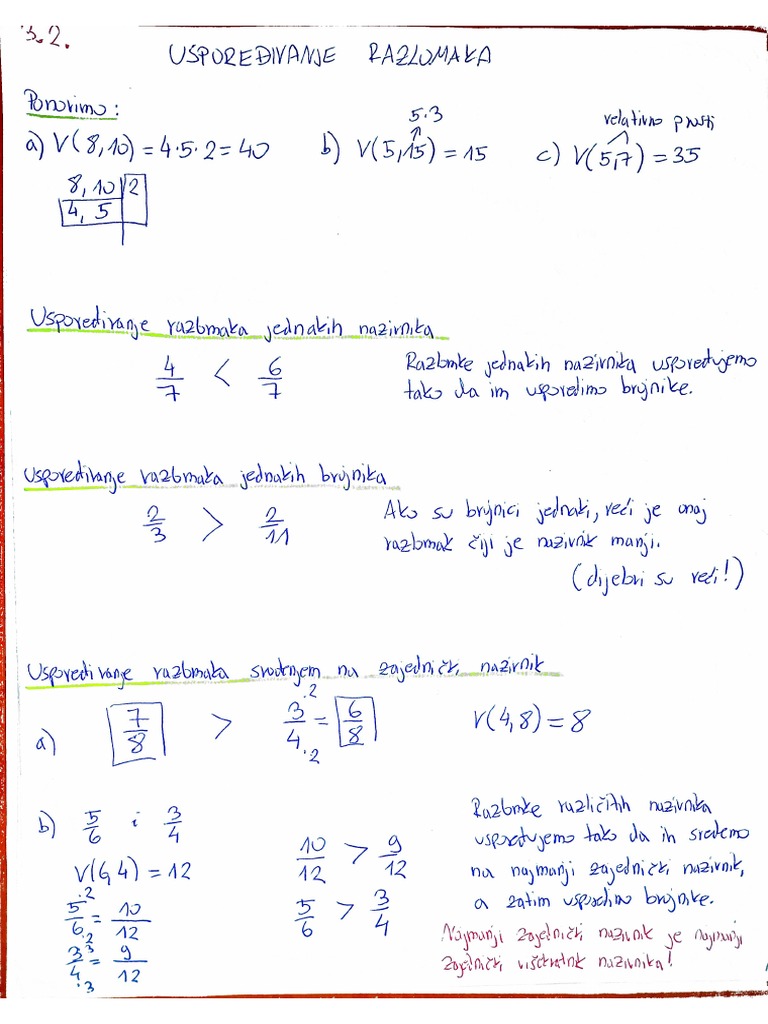 3.2.
USPOREĐIVANJE RAZLOMAKA
Ponovimo:
a) V(8,10) = 4·5·2 = 40
5·3
b) V(5,15) = 15
relativno prosti
c) V(5,7) = 35
8, 10 | 2
4, 5
Uspoređivanje razlomaka jednakih nazivnika
4/7 < 6/7
Razlomke jednakih nazivnika uspoređujemo
tako da im usporedimo brojnike.
Uspoređivanje razlomaka jednakih brojnika
2/3 > 2/11
Ako su brojnici jednaki, veći je onaj
razlomak čiji je nazivnik manji.
(dijelovi su veći!)
Uspoređivanje razlomaka svođenjem na zajednički nazivnik
a) 7/8 > 3·2/4·2 = 6/8
V(4,8) = 8
b) 5/6 i 3/4
V(6,4) = 12
5·2/6·2 = 10/12
3·3/4·3 = 9/12
10/12 > 9/12
5/6 > 3/4
Razlomke različitih nazivnika
uspoređujemo tako da ih svedemo
na najmanji zajednički nazivnik,
a zatim usporedimo brojnike.
Najmanji zajednički nazivnik je najmanji
zajednički višekratnik nazivnika!